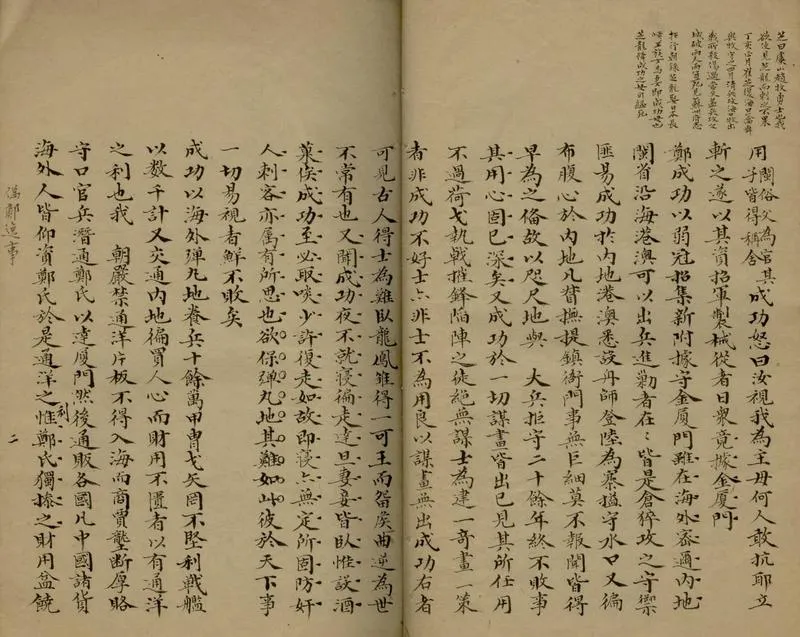 芝曰虞山趙牧勇士也我
欲使見芝龍而刺之不果
丁亥正月崔芝復海口命舜
與牧守之四月清兵攻海口牧出
戰所殺傷過當
城破見蘇州府志
行朝錄芝龍娶日本長
崎王族女為妻即成功母也
芝龍偕成功之母
用閩俗父為官其子皆得稱舍成功怒曰汝視我為主母何人敢抗耶立
斬之遂以其資招軍製械從者日衆竟據金厦門
鄭成功以弱冠招集新附據守金厦門雖在海外密邇內地
閩省沿海港澳可以出兵進勦者在〻皆是倉猝攻之守禦
匪易成功於內地港澳悉設舟師登陸為寨搤守水口又徧
布腹心於內地凡督撫提鎮衙門事無巨細莫不報聞皆得
早為之備故以咫尺地與　大兵拒守二十餘年終不敗事
其用心固已深矣又成功於一切謀畫皆出己見其所任用
不過荷戈執戟摧鋒陷陣之徒絕無謀士為建一奇畫一策
者非成功不好士亦非士不為用良以謀畫無出成功右者
可見古人得士為難臥龍鳳雛得一可王而留侯曲逆為世
不常有也又聞成功夜不就寢徧走達旦妻妾皆臥惟設酒
菓俟成功至必取啖少許復走如故即寢亦無定所固防奸
人刺客亦屬有所思也欲保彈丸地其難如此彼於天下事
一切易視者鮮不敗矣
成功以海外彈丸地養兵十餘萬甲冑戈矢罔不堅利戰艦
以數千計又交通內地徧買人心而財用不匱者以有通洋
之利也我　朝嚴禁通洋片板不得入海而商賈壟斷厚賂
守口官兵潛通鄭氏以達厦門然後通販各國凡中國諸貨
海外人皆仰資鄭氏於是通洋之利惟鄭氏獨操之財用益饒
偽鄭逸事
二